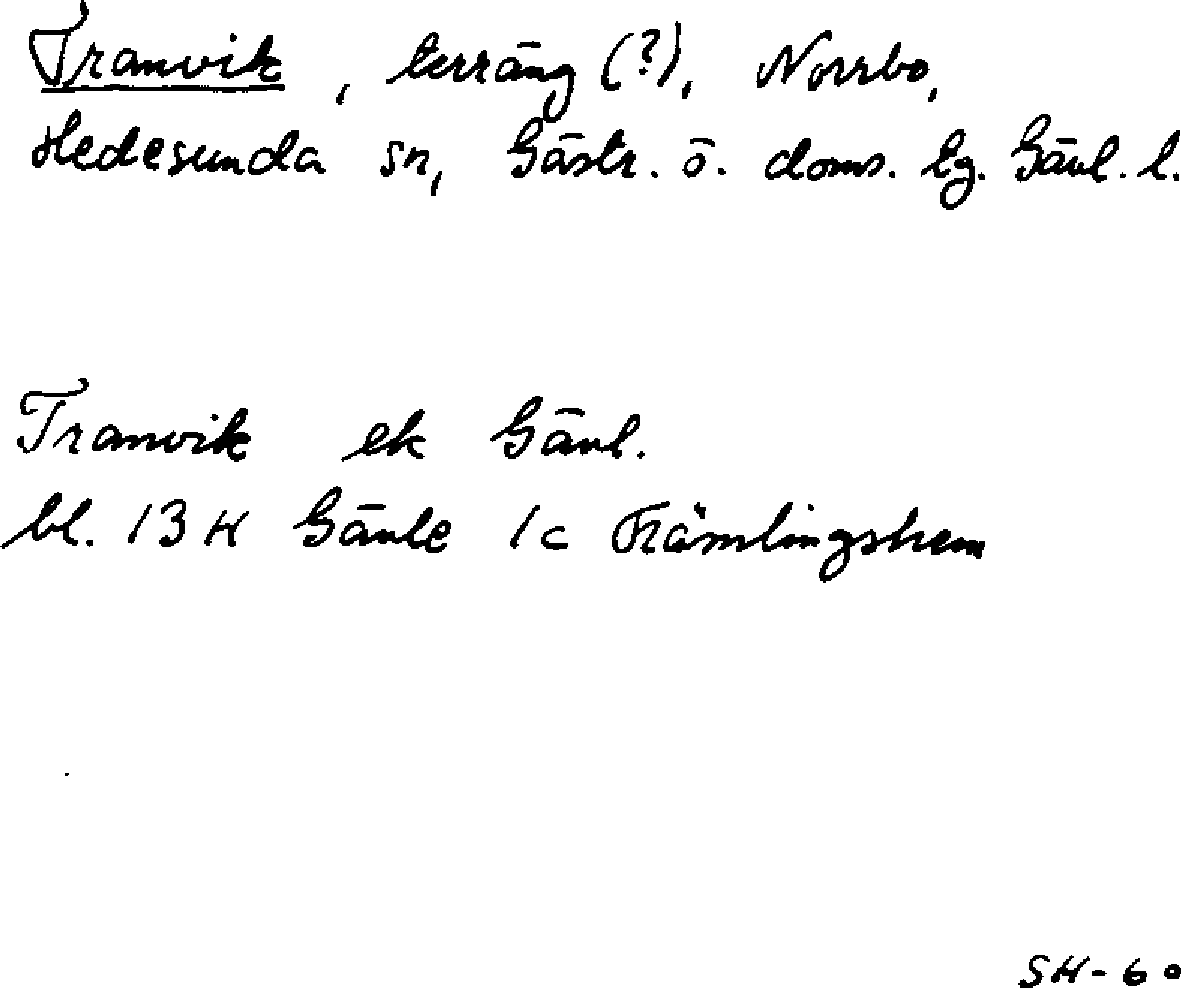 Tranvik, terräng (?), Norrbo,
Hedesunda sn, Gästr. ö. doms. tg. Gävl. l.
Tranvik ek Gävl.
bl. 13 H Gävle 1c Främlingshem
SH-60